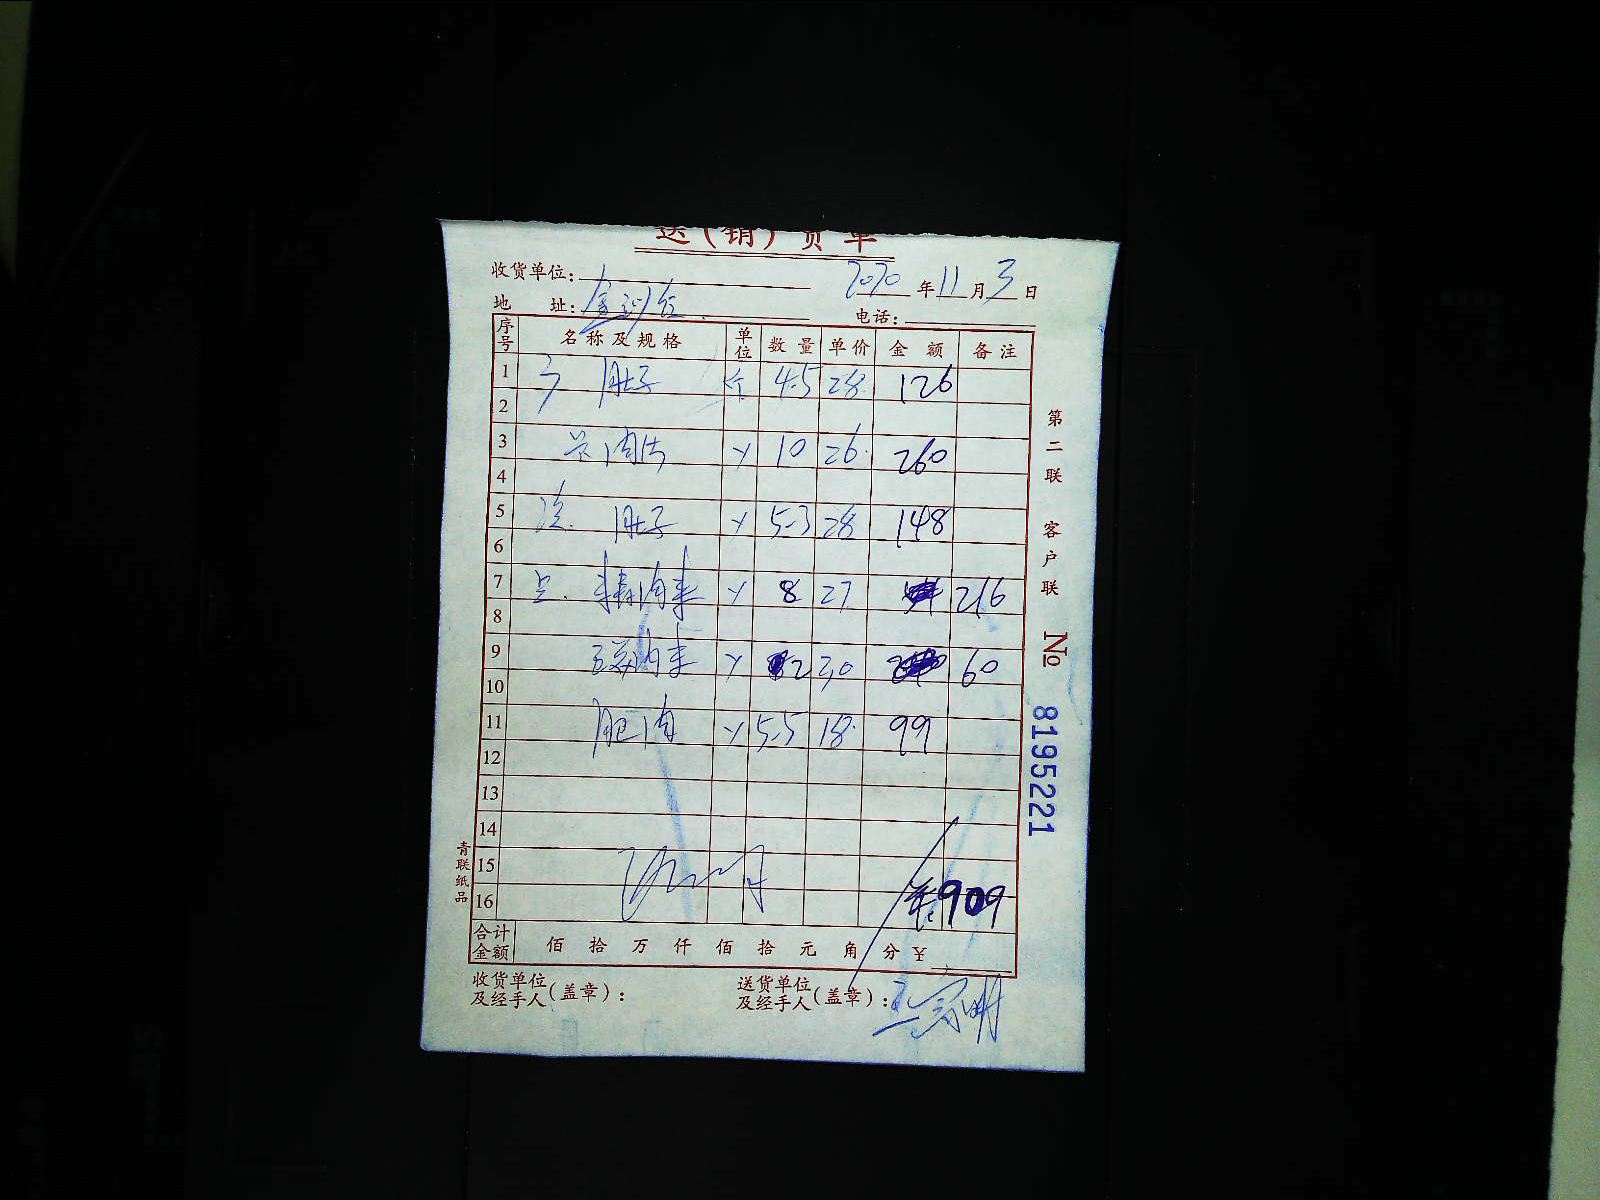 送(销)货单
收货单位: 2020年11月3日
地 址: 电话:
序号 名称及规格 单位 数量 单价 金额 备注
1 肚子 4.5 28 126
2
3 肉 10 26 260
4
5 肚子 5.3 28 148
6
7 精肉 8 27 216
8
9 肉 2 30 60
10
11 肥肉 5.5 18 99
12
13
14
15
16 909
合计金额 佰 拾 万 仟 佰 拾 元 角 分 ¥
收货单位及经手人(盖章): 送货单位及经手人(盖章):
第二联 客户联
No 8195221
青联纸品